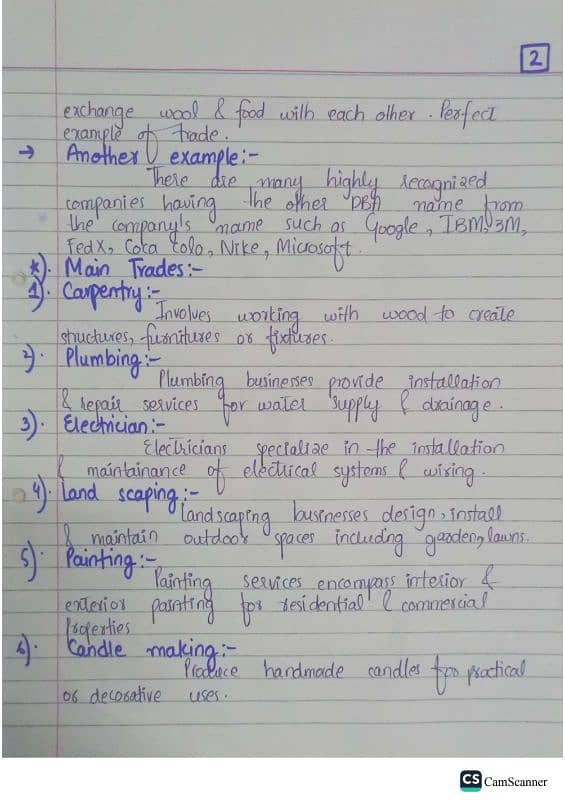 2
exchange wool & food with each other. Perfect
example of trade.
→ Another example:-
There are many highly recognized
companies having the other DBA name from
the company's name such as Google, IBM, 3M,
FedX, Coca Cola, Nike, Microsoft.
*). Main Trades:-
1). Carpentry:-
Involves working with wood to create
structures, furnitures or fixtures.
2). Plumbing:-
Plumbing businesses provide installation
& repair services for water supply & drainage.
3). Electrician:-
Electricians specialize in the installation
& maintainance of electrical systems & wiring.
4). Land scaping:-
Landscaping businesses design, install
& maintain outdoor spaces including garden, lawns.
5). Painting:-
Painting services encompass interior &
exterior painting for residential & commercial
properties
6). Candle making:-
Produce handmade candles for practical
or decorative uses.
CS CamScanner